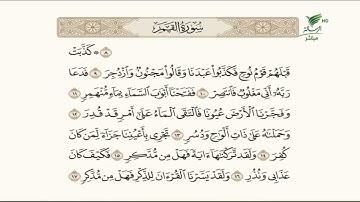 سُورَةُ القَمَرِ
HD
الرسالة
مباشر
٨ كَذَّبَتْ
قَبْلَهُمْ قَوْمُ نُوحٍ فَكَذَّبُوا۟ عَبْدَنَا وَقَالُوا۟ مَجْنُونٌ وَٱزْدُجِرَ ٩ فَدَعَا
رَبَّهُۥٓ أَنِّى مَغْلُوبٌ فَٱنتَصِرْ ١٠ فَفَتَحْنَآ أَبْوَٰبَ ٱلسَّمَآءِ بِمَآءٍ مُّنْهَمِرٍ ١١
وَفَجَّرْنَا ٱلْأَرْضَ عُيُونًا فَٱلْتَقَى ٱلْمَآءُ عَلَىٰٓ أَمْرٍ قَدْ قُدِرَ ١٢
وَحَمَلْنَٰهُ عَلَىٰ ذَاتِ أَلْوَٰحٍ وَدُسُرٍ ١٣ تَجْرِى بِأَعْيُنِنَا جَزَآءً لِّمَن كَانَ
كُفِرَ ١٤ وَلَقَد تَّرَكْنَٰهَآ ءَايَةً فَهَلْ مِن مُّدَّكِرٍ ١٥ فَكَيْفَ كَانَ
عَذَابِى وَنُذُرِ ١٦ وَلَقَدْ يَسَّرْنَا ٱلْقُرْءَانَ لِلذِّكْرِ فَهَلْ مِن مُّدَّكِرٍ ١٧